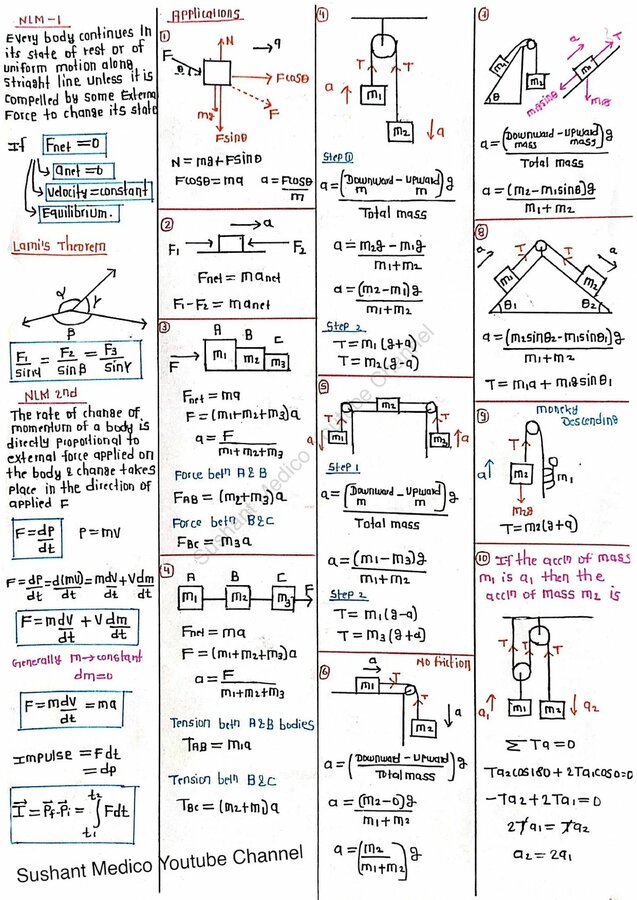 NLM-1
Every body continues in
its state of rest or of
uniform motion along
Stright line unless it is
compelled by some External
Force to change its state
If Fnet = 0
anet = 0
Velocity = constant
Equilibrium.
Lami's Theorem
α
γ
β
F1/sinα = F2/sinβ = F3/sinγ
NLM 2nd
The rate of change of
momentum of a body is
directly proportional to
external force applied on
the body & change takes
place in the direction of
applied F
F = dp/dt P = mv
F = dp/dt = d(mv)/dt = mdv/dt + vdm/dt
F = mdv/dt + v dm/dt
Generally m → constant
dm = 0
F = mdv/dt = ma
Impulse = Fdt
= dp
I = Pf - Pi = ∫ t1 t2 Fdt
Applications
①
N
a
F
θ
Fcosθ
F
mg
Fsinθ
N = mg + Fsinθ
Fcosθ = ma a = Fcosθ/m
②
a
F1 F2
Fnet = manet
F1 - F2 = manet
③
A B C
F m1 m2 m3
Fnet = ma
F = (m1+m2+m3)a
a = F/m1+m2+m3
Force betn A & B
FAB = (m2+m3)a
Force betn B & C
FBC = m3a
④
A B C
m1 m2 m3 F
Fnet = ma
F = (m1+m2+m3)a
a = F/m1+m2+m3
Tension betn A & B bodies
TAB = m1a
Tension betn B & C
TBC = (m2+m1)a
④
T T
a m1
m2 a
Step ①
a = (Downward m - Upward m)g/Total mass
a = m2g - m1g/m1+m2
a = (m2-m1)g/m1+m2
Step 2
T = m1(g+a)
T = m2(g-a)
⑤
m2
T T
a m1 m3 a
Step 1
a = (Downward m - Upward m)g/Total mass
a = (m1-m3)g/m1+m2
Step 2
T = m1(g-a)
T = m3(g+a)
⑥
No friction
a
m1 T
T
m2 a
a = (Downward - Upward/Total mass)g
a = (m2-0)g/m1+m2
a = (m2/m1+m2)g
⑦
m1
m2
θ
a
T
m1
m1gsinθ
m1g
a = (Downward mass - Upward mass)g/Total mass
a = (m2-m1sinθ)g/m1+m2
⑧
a T T a
m1 m2
θ1 θ2
a = (m2sinθ2-m1sinθ1)g/m1+m2
T = m1a + m1gsinθ1
⑨
moncky
Descending
T
a m2 m1
m2g
T = m2(g+a)
⑩ If the accln of mass
m1 is a1 then the
accln of mass m2 is
T T T
a1 m1 m2 a2
ΣTa = 0
Ta2cos180 + 2Ta1cos0=0
-Ta2 + 2Ta1 = 0
2Ta1 = Ta2
a2 = 2a1
Sushant Medico Youtube Channel
Sushant Medico Youtube Channel